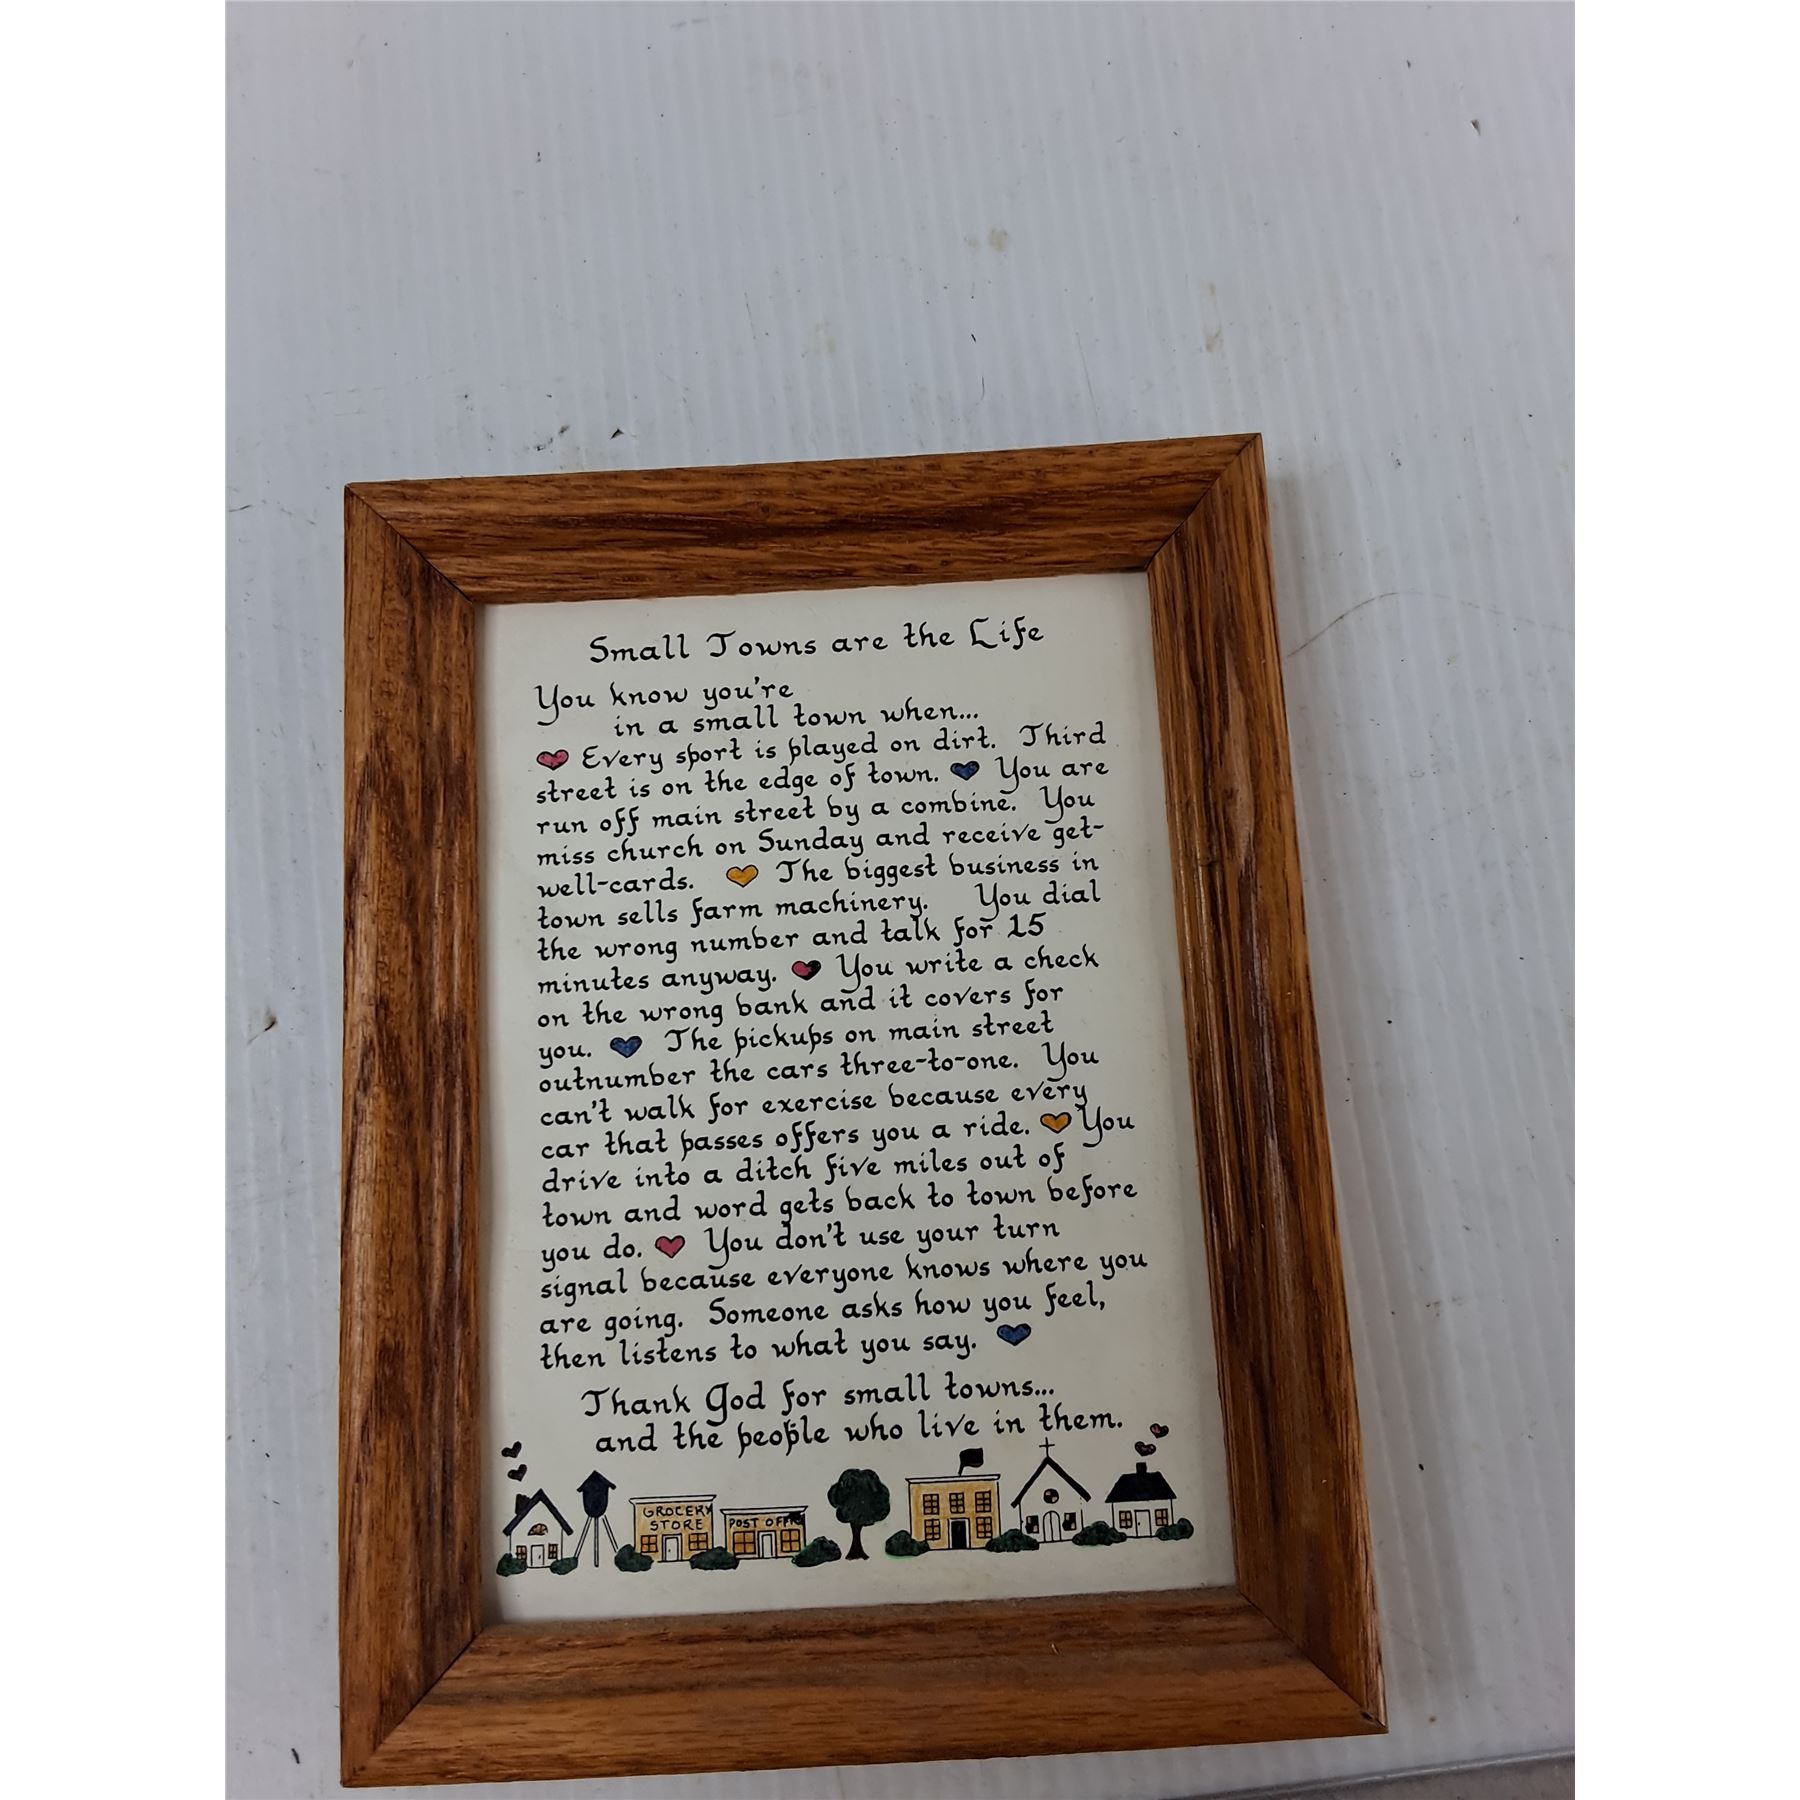 Small Towns are the Life
You know you're
in a small town when...
Every sport is played on dirt. Third
street is on the edge of town. You are
run off main street by a combine. You
miss church on Sunday and receive get-
well-cards. The biggest business in
town sells farm machinery. You dial
the wrong number and talk for 15
minutes anyway. You write a check
on the wrong bank and it covers for
you. The pickups on main street
outnumber the cars three-to-one. You
can't walk for exercise because every
car that passes offers you a ride. You
drive into a ditch five miles out of
town and word gets back to town before
you do. You don't use your turn
signal because everyone knows where you
are going. Someone asks how you feel,
then listens to what you say.
Thank God for small towns...
and the people who live in them.
GROCERY
STORE
POST OFFICE